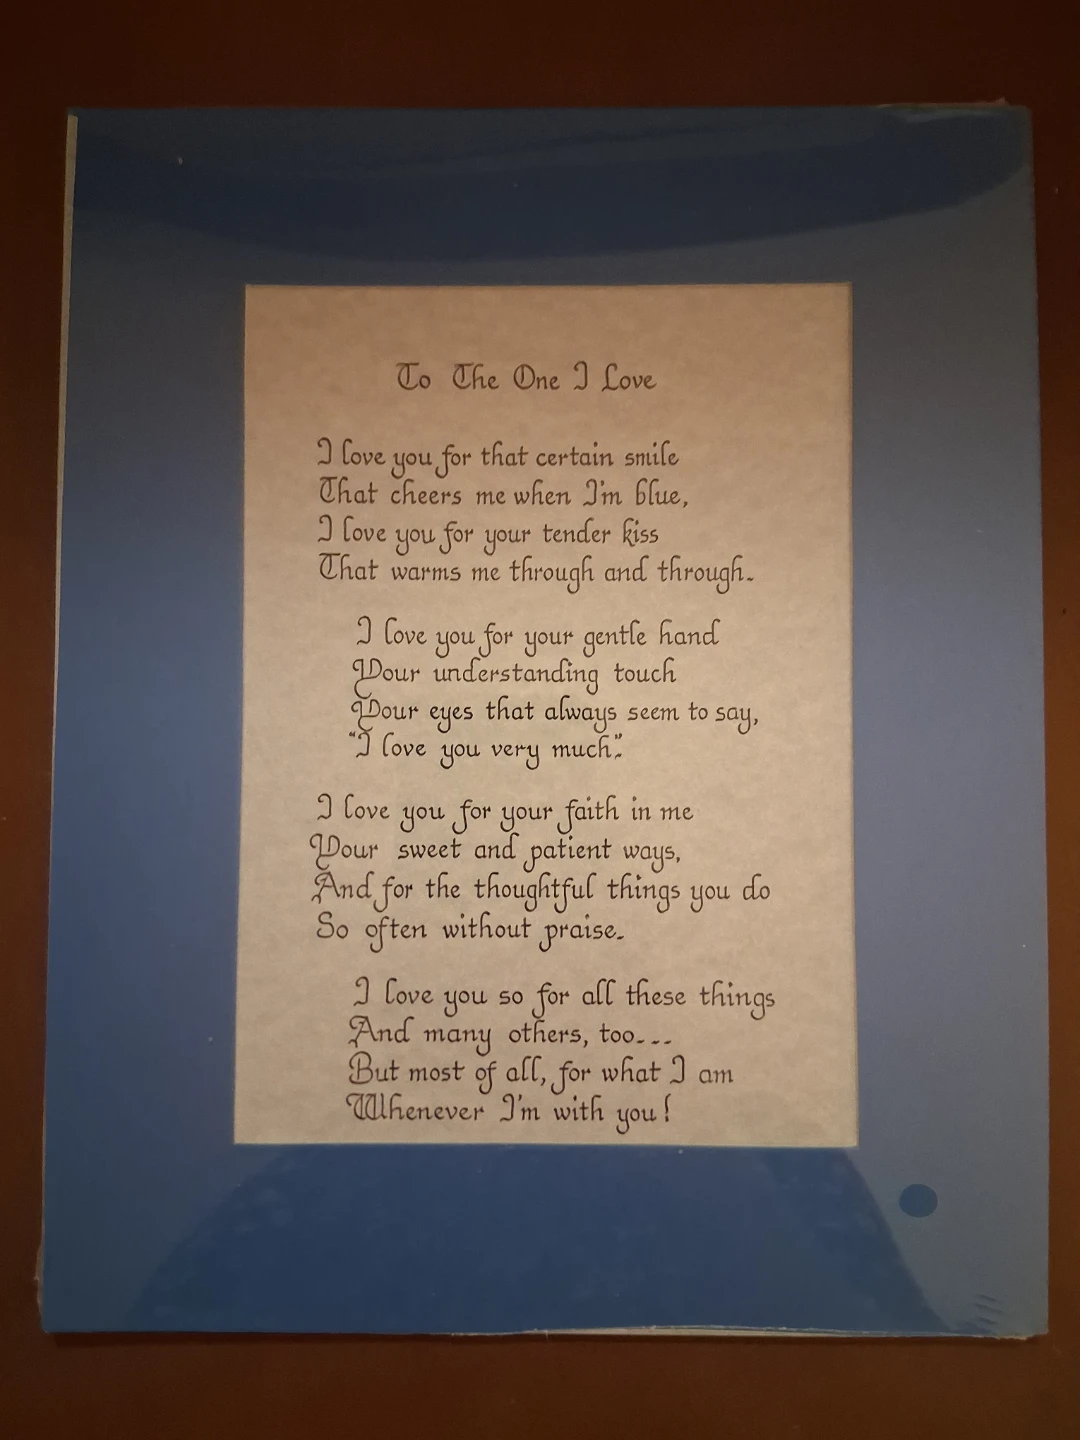 To The One I Love
I love you for that certain smile
That cheers me when I'm blue,
I love you for your tender kiss
That warms me through and through.
I love you for your gentle hand
Your understanding touch
Your eyes that always seem to say,
"I love you very much."
I love you for your faith in me
Your sweet and patient ways,
And for the thoughtful things you do
So often without praise.
I love you so for all these things
And many others, too...
But most of all, for what I am
Whenever I'm with you!